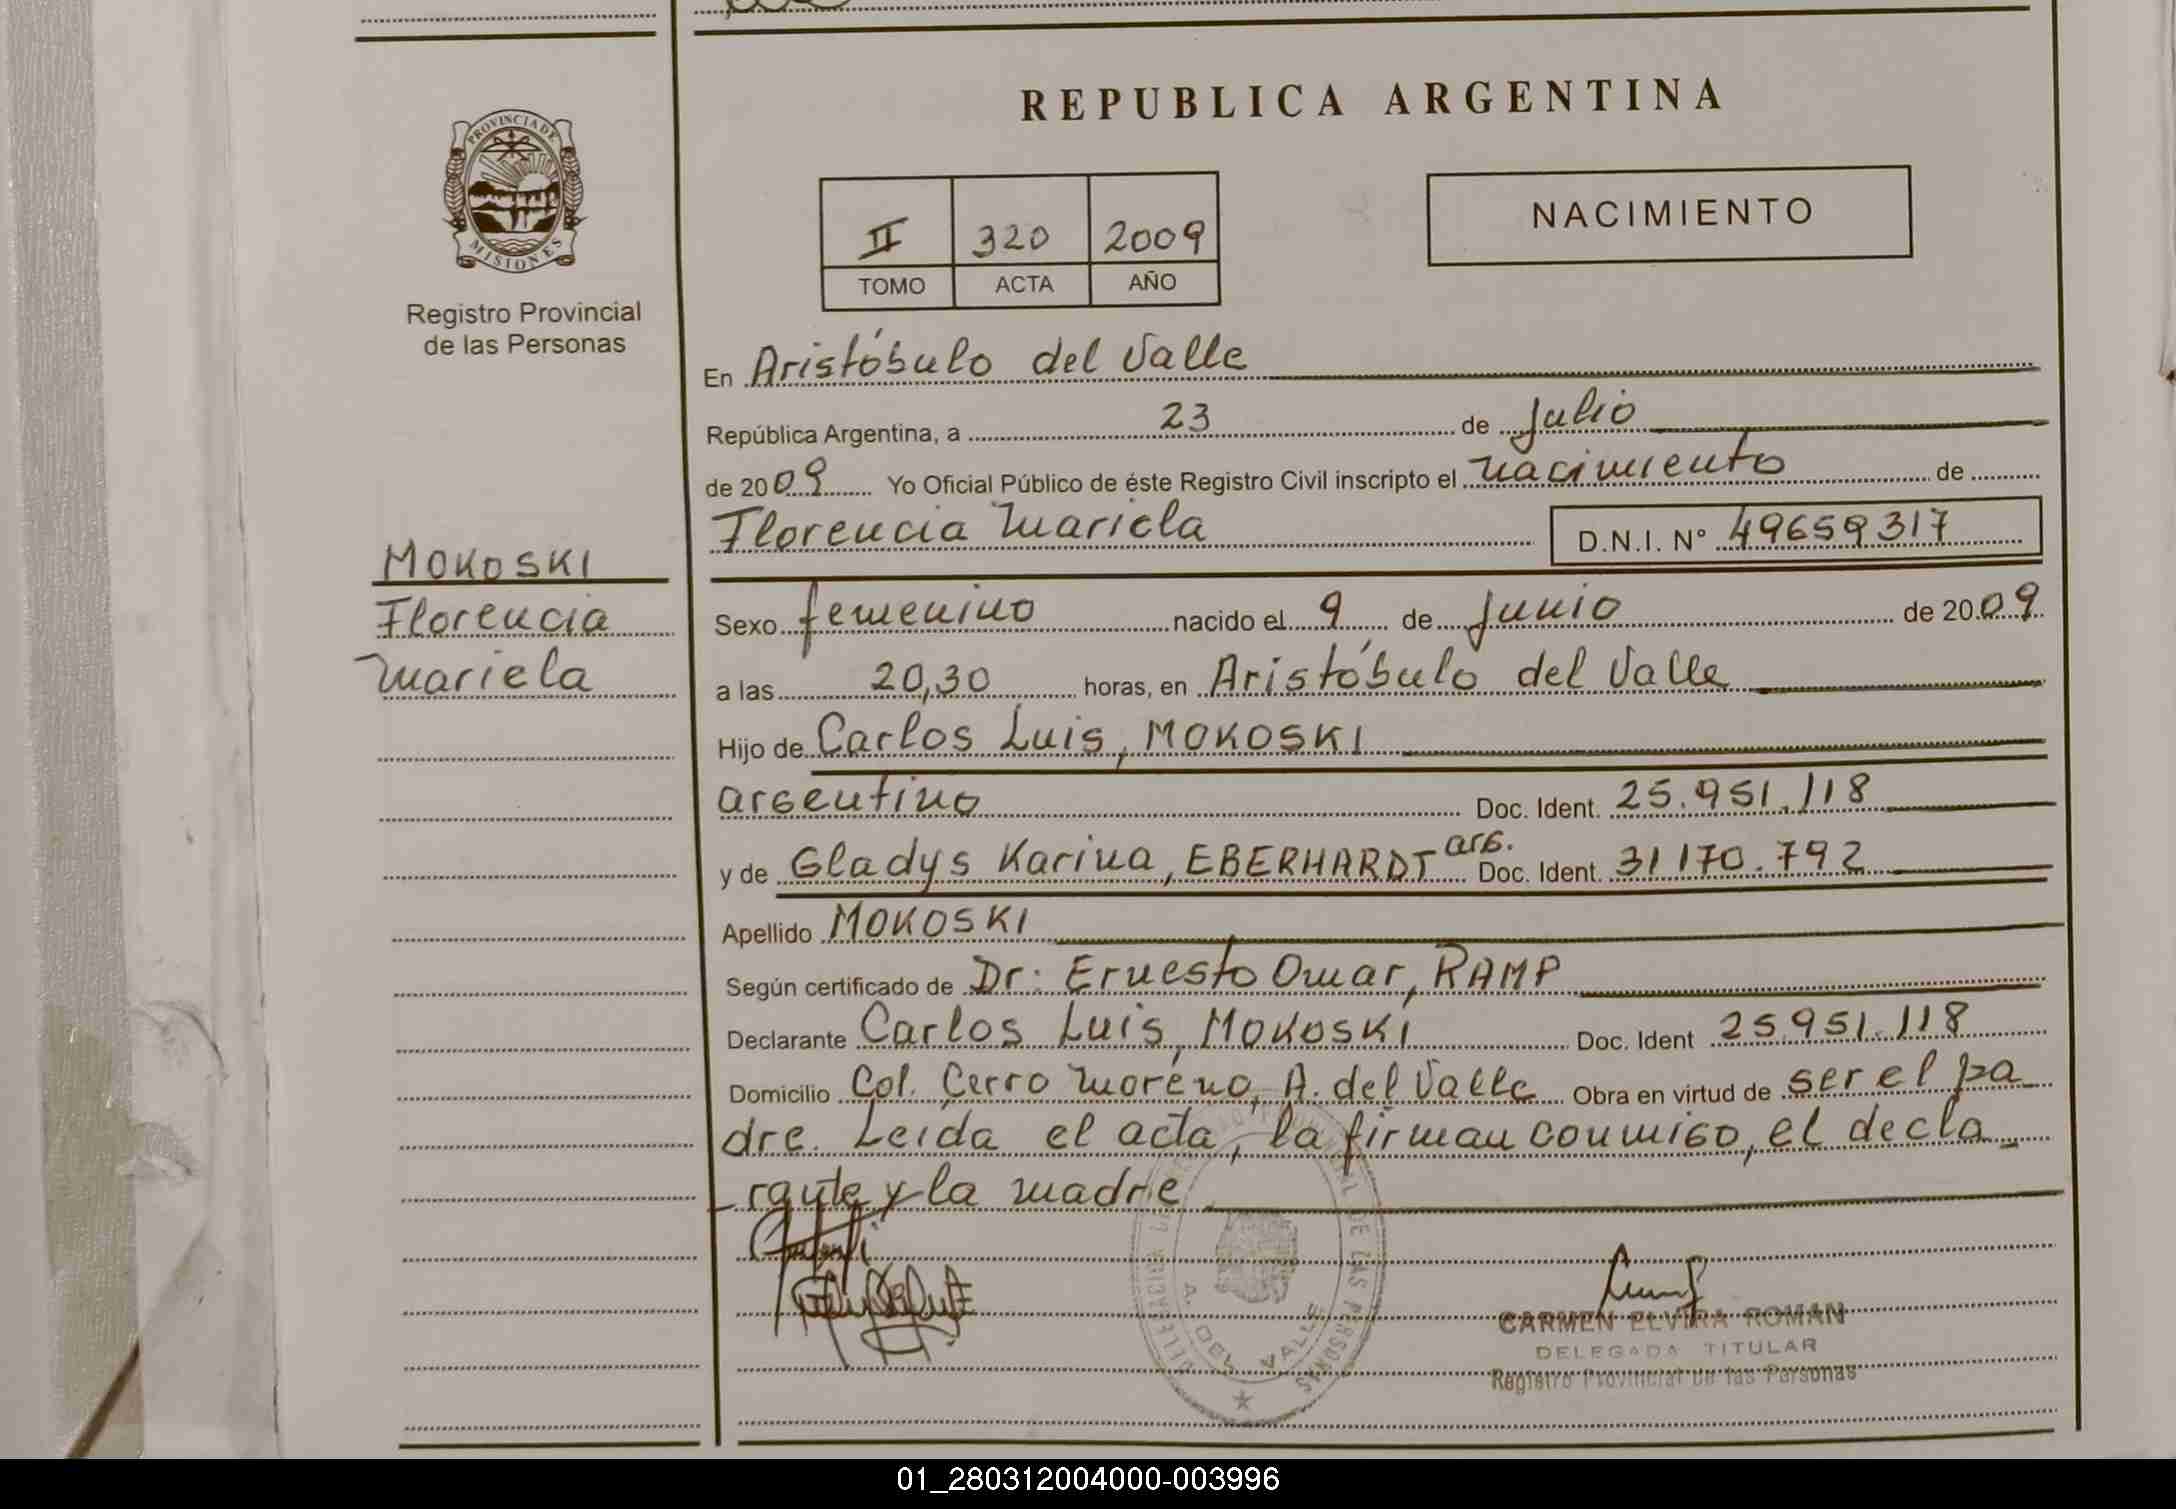 REPUBLICA ARGENTINA
PROVINCIA DE
MISIONES
Registro Provincial
de las Personas
II 320 2009
TOMO ACTA AÑO
NACIMIENTO
En Aristóbulo del Valle
República Argentina, a 23 de Julio
de 2009 Yo Oficial Público de éste Registro Civil inscripto el nacimiento de
Florencia Mariela D.N.I. N° 49659317
MOKOSKI
Florencia
Mariela
Sexo femenino nacido el 9 de Junio de 2009
a las 20,30 horas, en Aristóbulo del Valle
Hijo de Carlos Luis, MOKOSKI
argentino Doc. Ident. 25.951.118
y de Gladys Karina, EBERHARDT arg. Doc. Ident. 31170.792
Apellido MOKOSKI
Según certificado de Dr: Ernesto Omar, RAMP
Declarante Carlos Luis, MOKOSKI Doc. Ident 25951.118
Domicilio Col. Cerro Moreno, A. del Valle Obra en virtud de ser el pa
dre. Leída el acta, la firman conmigo, el decla
rante y la madre
DELEGACION REGISTRO PROVINCIAL DE LAS PERSONAS
A. DEL VALLE
CARMEN ELVIRA ROMAN
DELEGADA TITULAR
Registro Provincial de las Personas
01_280312004000-003996